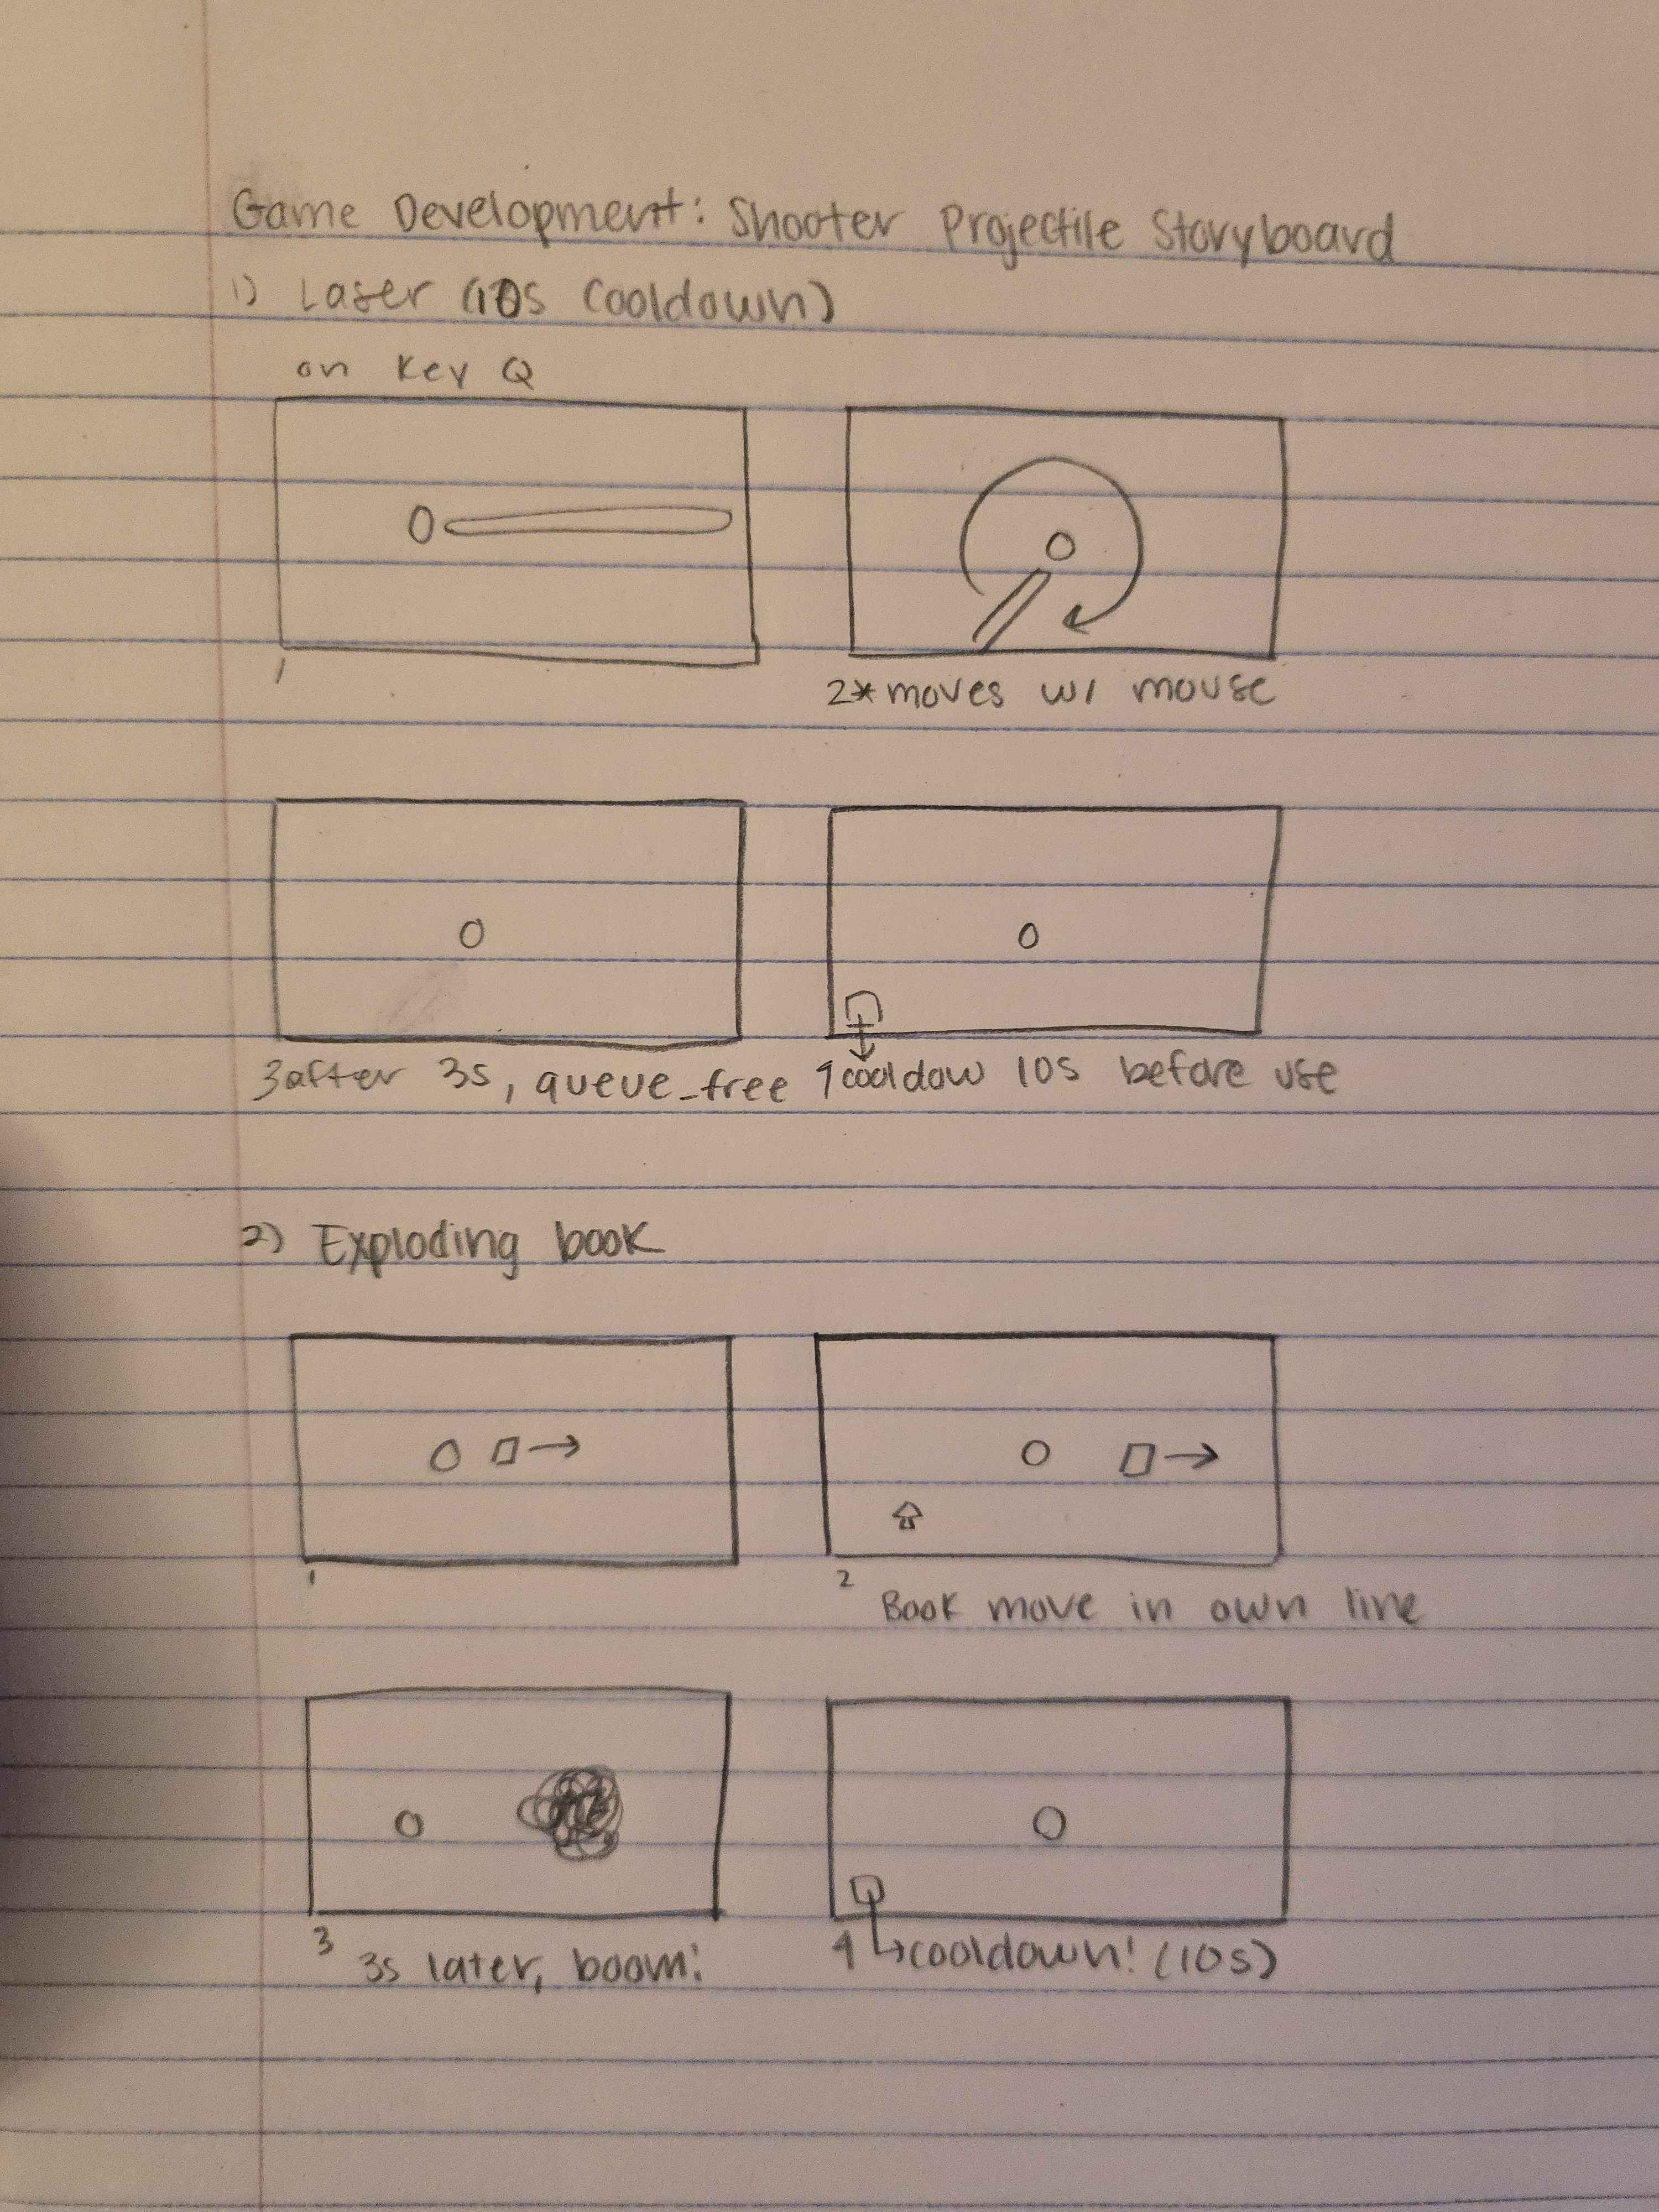 Game Development: Shooter Projectile Storyboard
1) Laser (10s Cooldown)
on Key Q
1
2* moves w/ mouse
3 after 3s, queue_free
4 cooldow 10s before use
2) Exploding book
1
2 Book move in own line
3 3s later, boom!
4 cooldown! (10s)